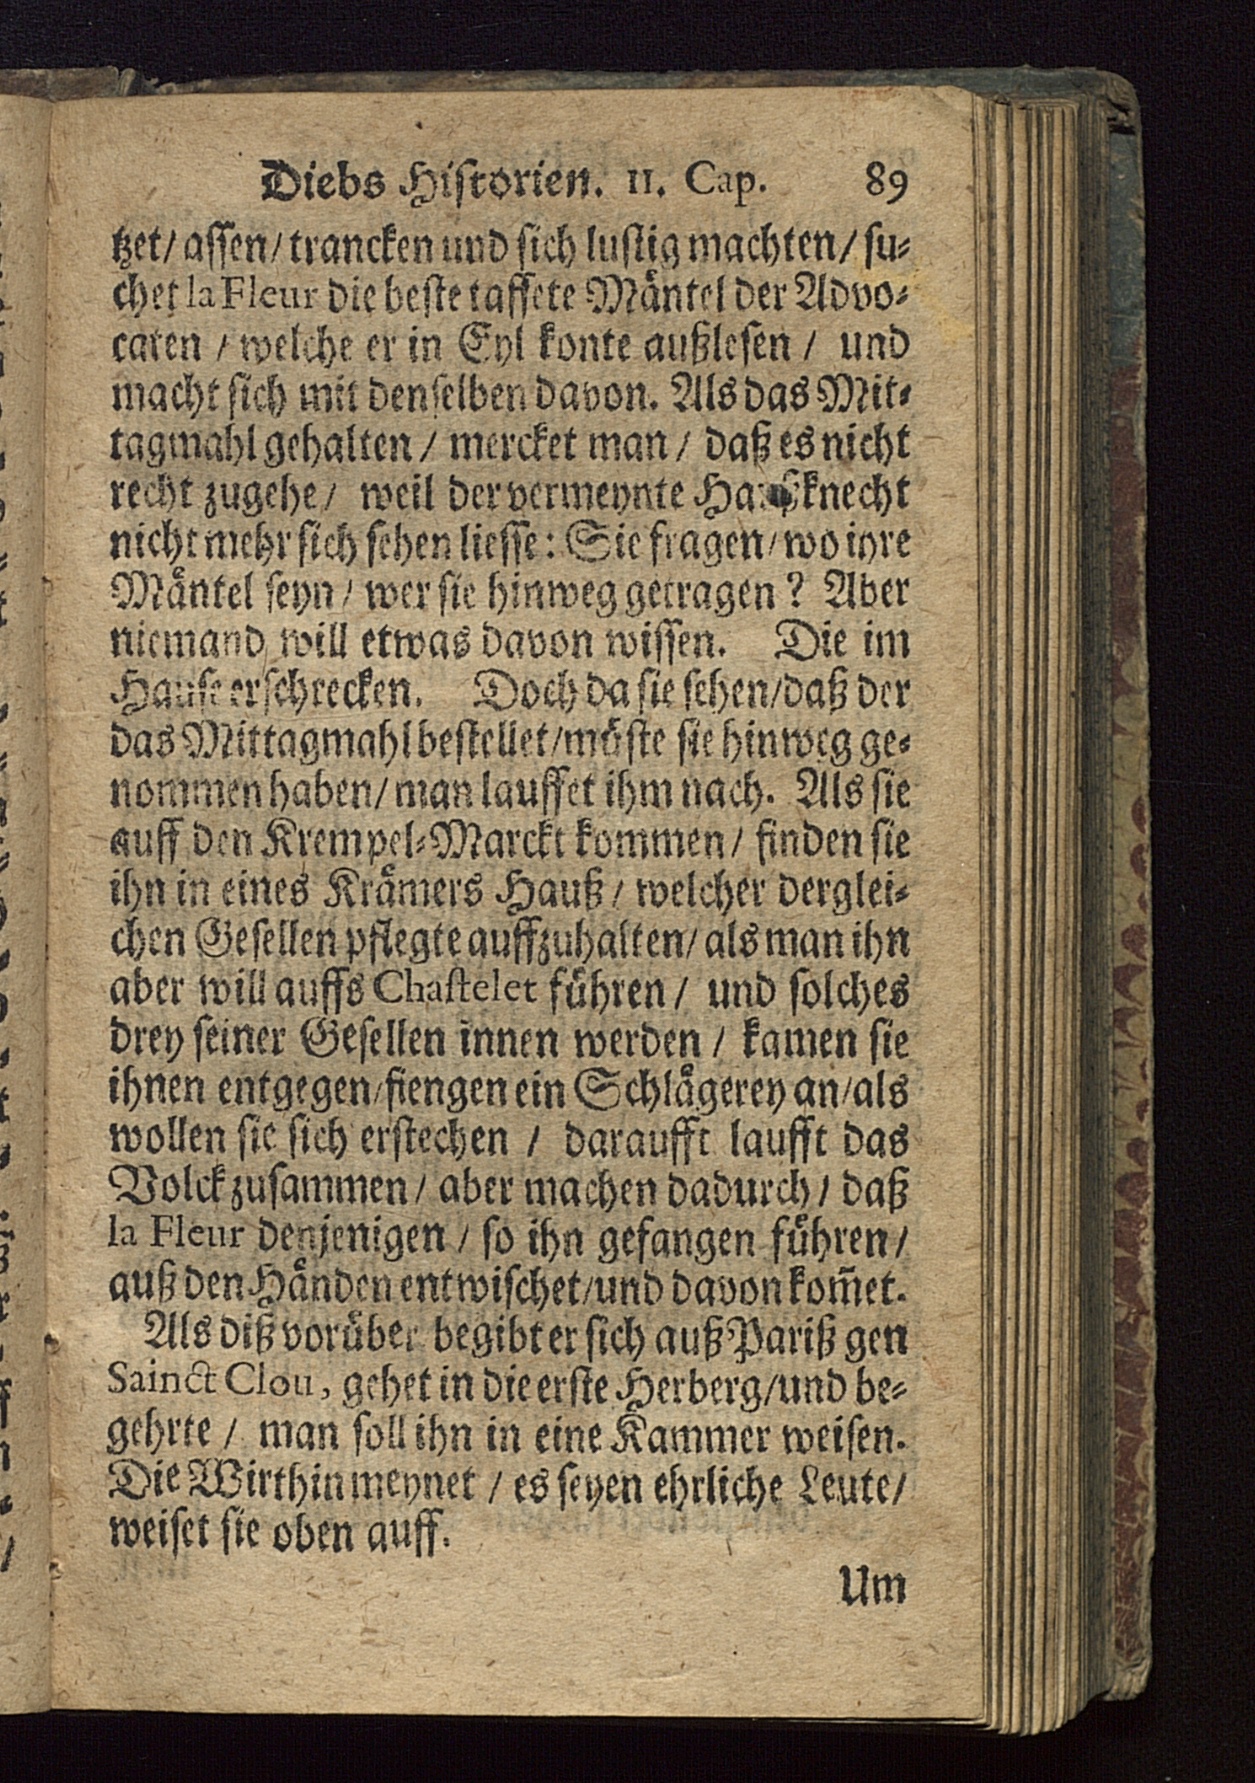 Diebs Historien. II. Cap. 89
tzet/ assen/ trancken und sich lustig machten/ su-
chet la Fleur die beste taffete Mäntel der Advo-
caten / welche er in Eyl konte außlesen / und
macht sich mit denselben davon. Als das Mit-
tagmahl gehalten / mercket man / daß es nicht
recht zugehe / weil der vermeynte Haußknecht
nicht mehr sich sehen liesse: Sie fragen/ wo ihre
Mäntel seyn / wer sie hinweg getragen? Aber
niemand will etwas davon wissen. Die im
Hause erschrecken. Doch da sie sehen/daß der
das Mittagmahl bestellet/müste sie hinweg ge-
nommen haben/ man lauffet ihm nach. Als sie
auff den Krempel-Marckt kommen / finden sie
ihn in eines Krämers Hauß / welcher derglei-
chen Gesellen pflegte auffzuhalten/ als man ihn
aber will auffs Chastelet führen / und solches
drey seiner Gesellen innen werden / kamen sie
ihnen entgegen/fiengen ein Schlägerey an/als
wollen sie sich erstechen / daraufft laufft das
Volck zusammen / aber machen dadurch / daß
la Fleur denjenigen / so ihn gefangen führen /
auß den Händen entwischet/und davon kom̄et.
Als diß vorüber begibt er sich auß Pariß gen
Sainct Clou, gehet in die erste Herberg/und be-
gehrte / man soll ihn in eine Kammer weisen.
Die Wirthin meynet / es seyen ehrliche Leute/
weiset sie oben auff.
Um